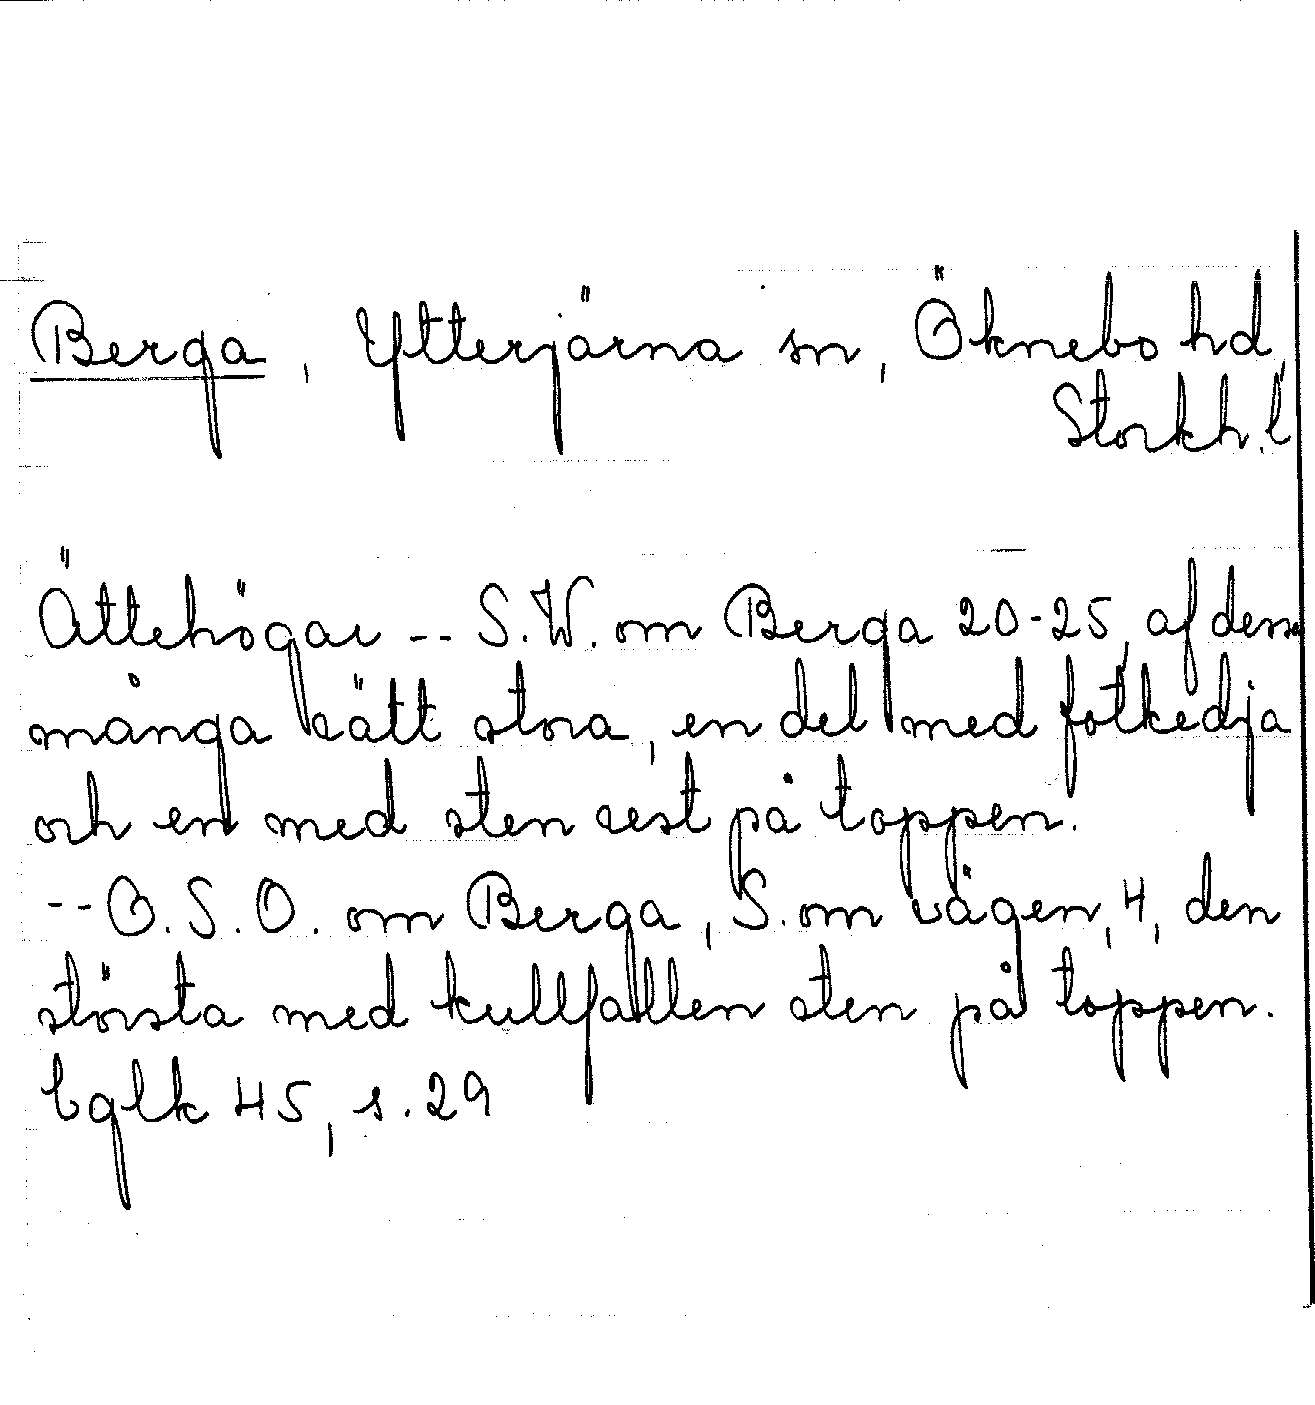 Berga, Ytterjärna sn, Öknebo hd,
Storkh. l
Ättehögar -- S.W. om Berga 20-25, af dem
många rätt stora, en del med fotkedja
och en med sten rest på toppen.
-- O.S.O. om Berga, S. om vägen, 4, den
största med kullfallen sten på toppen.
bglk 45, s. 29